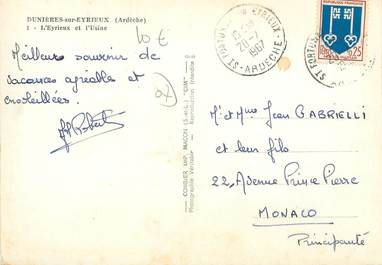 DUNIERES-sur-EYRIEUX (Ardèche)
1 - L'Eyrieux et l'Usine
10 €
Meilleurs souvenir de
vacances agréable et
ensoleillées.
CONSIER IMP. MACON (S.-et-L.) "CIM"
Photographie Véritable Reproduction interdite
ST FORTUNAT S EYRIEUX
28-7
1967
ARDECHE
REPUBLIQUE FRANCAISE
0,25
ST FORTUNAT
Mr et Mme Jean GABRIELLI
et leur fils
22, Avenue Prince Pierre
MONACO
Principauté